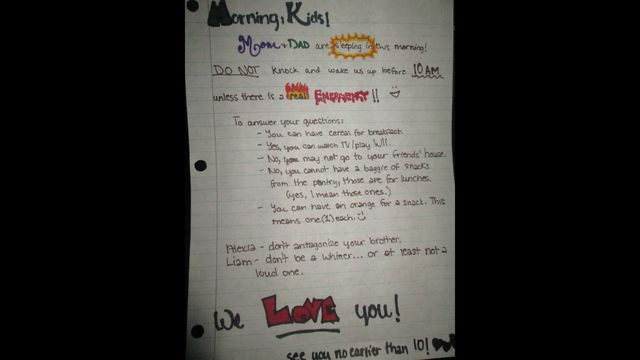 Morning, Kids!
Mom + DAD are sleeping in this morning!
DO NOT knock and wake us up before 10 AM
unless there is a real EMERGENCY!! :)
To answer your questions:
- You can have cereal for breakfast.
- Yes, you can watch TV/play Wii.
- No, you may not go to your friends' house.
- No, you cannot have a baggie of snacks
from the pantry, those are for lunches.
(yes, I mean those ones.)
- You can have an orange for a snack. This
means one (1) each. :)
Alexia - don't antagonize your brother.
Liam - don't be a whiner... or at least not a
loud one.
We LOVE you!
see you no earlier than 10! ♥♥